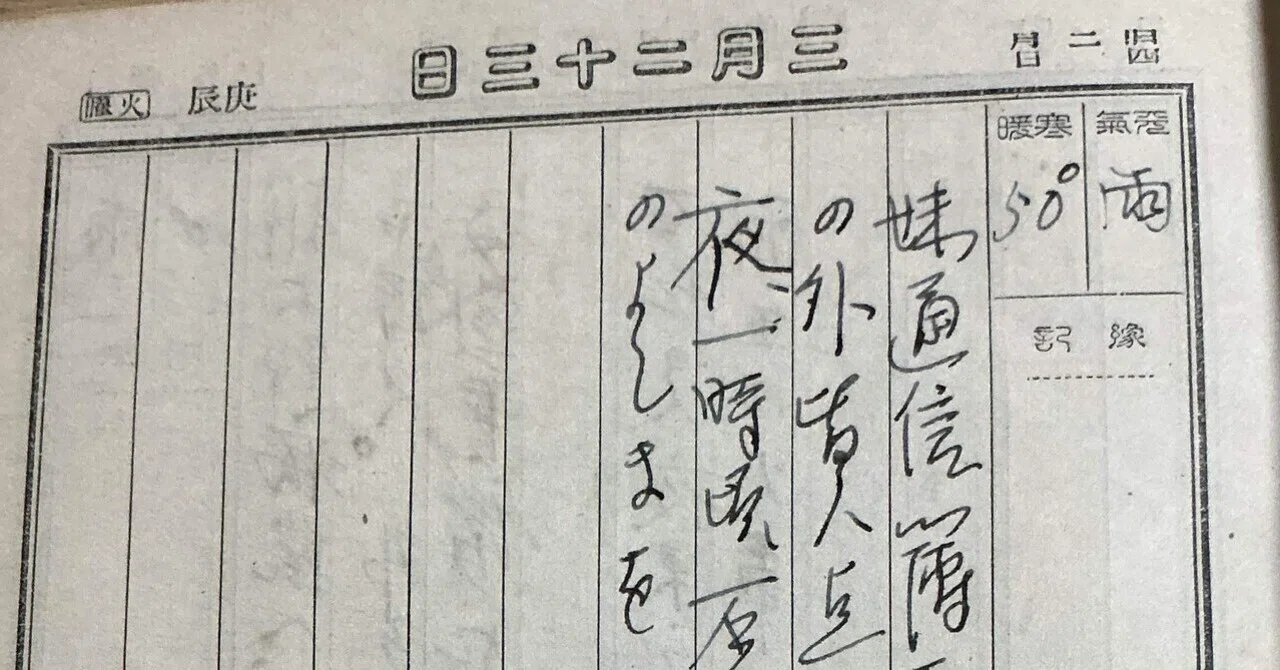 旧二月四日
三月二十三日
庚辰
火曜
天氣
雨
寒暖
50°
豫記
妹通信簿
の外皆八点
夜一時頃
のよしまを